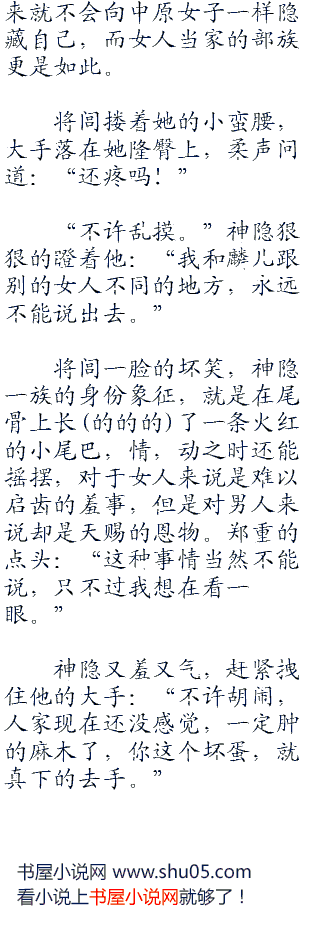 来就不会向中原女子一样隐
藏自己，而女人当家的部族
更是如此。
将闾搂着她的小蛮腰，
大手落在她隆臀上，柔声问
道：“还疼吗！”
“不许乱摸。”神隐狠
狠的瞪着他：“我和麟儿跟
别的女人不同的地方，永远
不能说出去。”
将闾一脸的坏笑，神隐
一族的身份象征，就是在尾
骨上长(的的的)了一条火红
的小尾巴，情，动之时还能
摇摆，对于女人来说是难以
启齿的羞事，但是对男人来
说却是天赐的恩物。郑重的
点头：“这种事情当然不能
说，只不过我想在看一
眼。”
神隐又羞又气，赶紧拽
住他的大手：“不许胡闹，
人家现在还没感觉，一定肿
的麻木了，你这个坏蛋，就
真下的去手。”
书屋小说网 www.shu05.com
看小说上书屋小说网就够了！